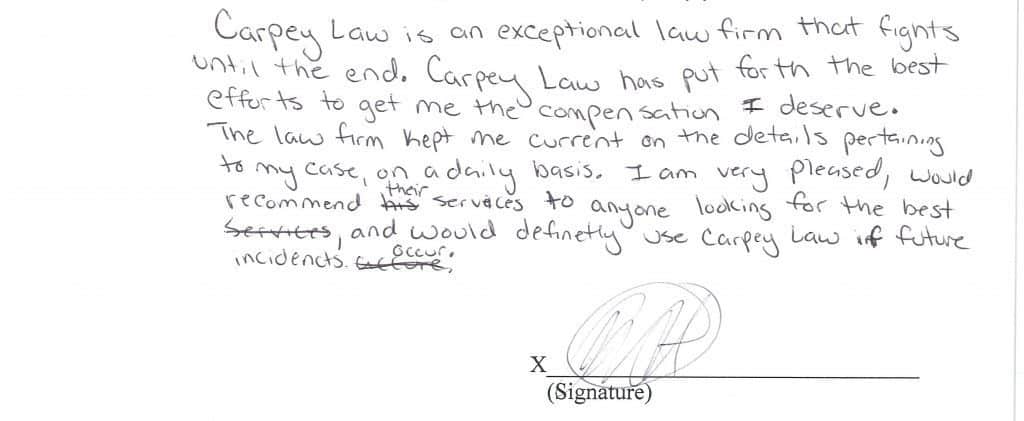 Carpey Law is an exceptional law firm that fights
until the end. Carpey Law has put forth the best
efforts to get me the compensation I deserve.
The law firm kept me current on the details pertaining
to my case, on a daily basis. I am very pleased, would
recommend his their services to anyone looking for the best
services, and would definetly use Carpey Law if future
incidencts. occur.
X
(Signature)